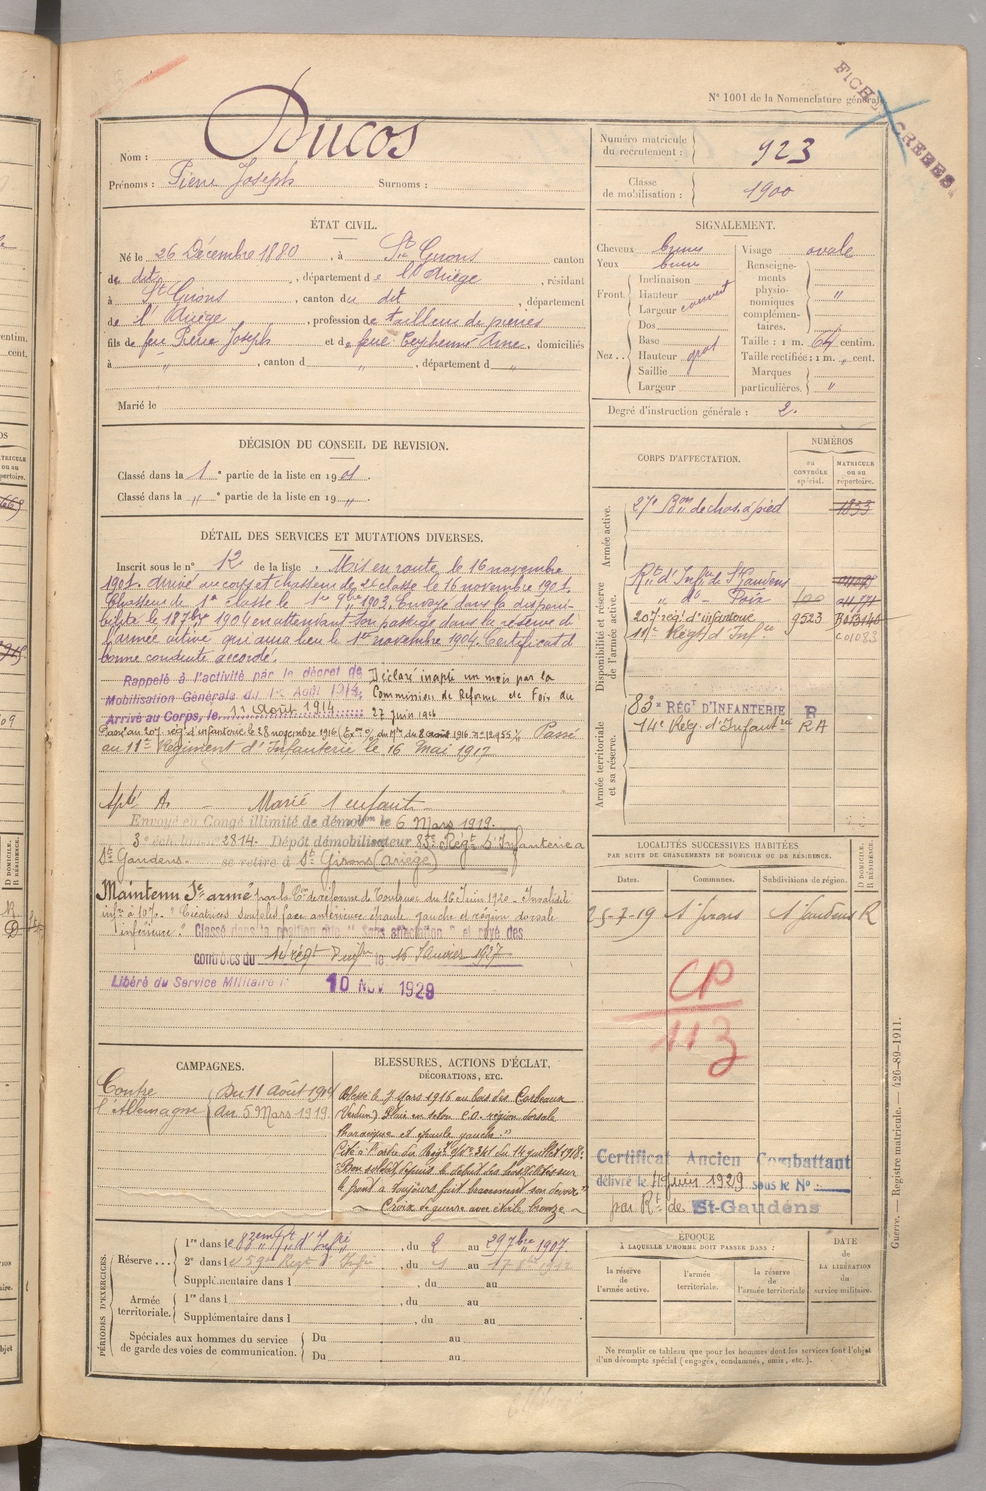 FICHE CREEE
N° 1001 de la Nomenclature générale
Nom : Ducos
Prénoms : Pierre Joseph Surnoms :
Numéro matricule du recrutement : 923
Classe de mobilisation : 1900
ÉTAT CIVIL.
Né le 26 Décembre 1880, à St Girons canton
de dit, département de l'Ariège, résidant
à St Girons, canton du dit, département
de l'Ariège, profession de tailleur de pierres
fils de feu Pierre Joseph et de feue Anne, domiciliés
à „, canton d „, département d „
Marié le
SIGNALEMENT.
Cheveux bruns
Yeux bruns
Front. Inclinaison
Hauteur
Largeur couvert
Nez. Dos
Base
Hauteur gros
Saillie
Largeur
Visage ovale
Renseignements physionomiques complémentaires. „
Taille : 1 m. 64 centim.
Taille rectifiée : 1 m. „ cent.
Marques particulières. „
Degré d'instruction générale : 2.
DÉCISION DU CONSEIL DE REVISION.
Classé dans la 1e partie de la liste en 1901.
Classé dans la „ e partie de la liste en 19 „.
DÉTAIL DES SERVICES ET MUTATIONS DIVERSES.
Inscrit sous le n° 12 de la liste. Mis en route le 16 novembre
1901. Arrivé au corps et chasseur de 2e classe le 16 novembre 1901.
Chasseur de 1e classe le 1er 9bre 1903. Envoyé dans la disponi-
bilité le 18 7bre 1904 en attendant son passage dans la réserve de
l'armée active qui aura lieu le 1er novembre 1904. Certificat de
bonne conduite accordé.
Rappelé à l'activité par le décret de
Mobilisation Générale du 1er Août 1914.
Arrivé au Corps, le 11 Août 1914
Déclaré inapte un mois par la
Commission de Réforme de Foix du
27 juin 1916
Passé au 207e rég. d'infanterie le 28 novembre 1916 Passé
au 11e Régiment d'Infanterie le 16 Mai 1917
Apte A. - Marié 1 enfant
Envoyé en Congé illimité de démobon le 6 Mars 1919.
3e 2814. Dépôt démobilisateur 83e Régt d'Infanterie à
St Gaudens. se retire à St Girons (Ariège)
Maintenu Se armé par la Con de réforme de Toulouse du 16 Juin 1920. Invalidité
infre à 10%. "Cicatrices souples face antérieure épaule gauche et région dorsale
inférieure." Classé dans la position dite "Sans affectation" et rayé des
contrôles du 14e régt d'inftie le 15 Janvier 1927
Libéré du Service Militaire le 10 NOV 1929
CORPS D'AFFECTATION.
NUMÉROS
au CONTRÔLE spécial.
MATRICULE ou au répertoire.
Armée active.
27e Bon de chas. à pied 1833
Disponibilité et réserve de l'armée active.
Rt d'Infie de St Gaudens
„ do Foix 100
207 rég. d'infanterie 9523
11e Régt d'Infie C01083
Armée territoriale et sa réserve.
83e RÉGT D'INFANTERIE R
14e Rég. d'Infanterie RA
LOCALITÉS SUCCESSIVES HABITÉES
PAR SUITE DE CHANGEMENTS DE DOMICILE OU DE RÉSIDENCE.
Dates. Communes. Subdivisions de région. D DOMICILE. R RÉSIDENCE.
25-7-19 St Girons St Gaudens R
CP
113
Certificat Ancien Combattant
délivré le juin 1929 sous le N° :
par Rt de St-Gaudens
CAMPAGNES.
Contre l'Allemagne
Du 11 Août 1914
Au 5 Mars 1919.
BLESSURES, ACTIONS D'ÉCLAT,
DÉCORATIONS, ETC.
Blessé le 7 Mars 1916 au bois des Corbeaux
(Verdun) Plaie en séton E.O. région dorsale
thoracique et épaule gauche."
Cité à l'ordre du Régt n° 341 du 14 juillet 1918.
"Bon soldat depuis le début des hostilités sur
le front a toujours fait bravement son devoir"
— Croix de guerre avec étoile bronze —
PÉRIODES D'EXERCICES.
Réserve... 1re dans le 83eme Rt d'Infie, du 2 au 29 7bre 1907.
2e dans le 59e Régt d'Infie, du 1 au 17
Supplémentaire dans l , du au
Armée territoriale. 1re dans l , du au
Supplémentaire dans l , du au
Spéciales aux hommes du service de garde des voies de communication. Du au
Du au
ÉPOQUE
À LAQUELLE L'HOMME DOIT PASSER DANS :
la réserve de l'armée active.
l'armée territoriale.
la réserve de l'armée territoriale
DATE de LA LIBÉRATION du service militaire.
Ne remplir ce tableau que pour les hommes dont les services font l'objet
d'un décompte spécial (engagés, condamnés, omis, etc.).
Guerre. — Registre matricule. — 426-89-1911.